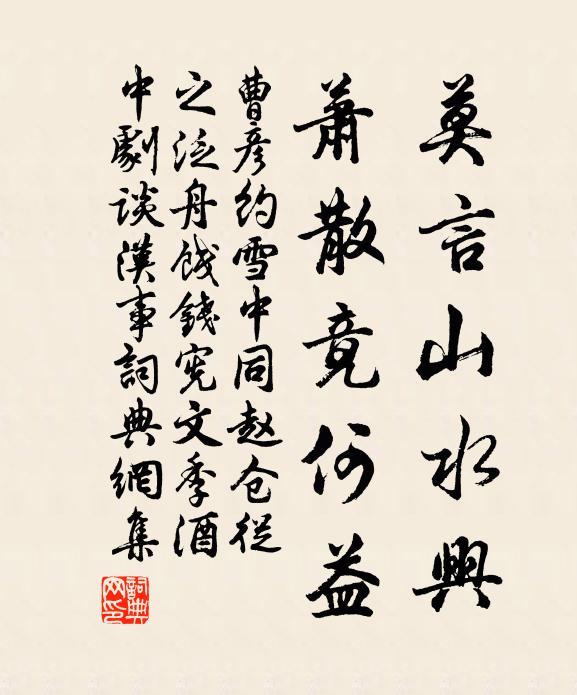 莫言山水興
蕭散竟何益
曹彦約雪中同赵仓從
之泛舟餞錢宪文季酒
中劇談漢事詞典網集
詞典
网印